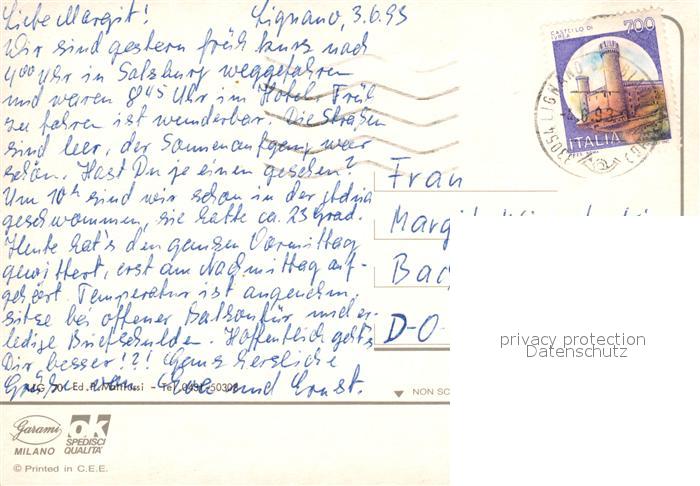 Liebe Margit! Lignano, 3.6.93
Wir sind gestern früh kurz nach
4 00 Uhr in Salzburg weggefahren
und waren 8 45 Uhr im Hotel. Früh
zu fahren ist wunderbar. Die Straßen
sind leer, der Sonnenaufgang war
schön. Hast Du je einen gesehen?
Um 10 h sind wir schon in der Adria
geschwommen, sie hatte ca. 23 Grad.
Heute hat's den ganzen Vormittag
gewittert, erst am Nachmittag auf-
gehört. Temperatur ist angenehm,
sitze bei offener Balkontür und er-
ledige Briefschulden. Hoffentlich geht's
Dir besser!?! Ganz herzliche
Grüße von und Ernst.
Frau
Marg
Bad
D-O-
CASTELLO DI
IVREA
700
ITALIA
33054 LIGNANO
privacy protection
Datenschutz
Ed. - Tel. 0431-50308
NON SC
Garami
MILANO
ok
SPEDISCI
QUALITA'
© Printed in C.E.E.